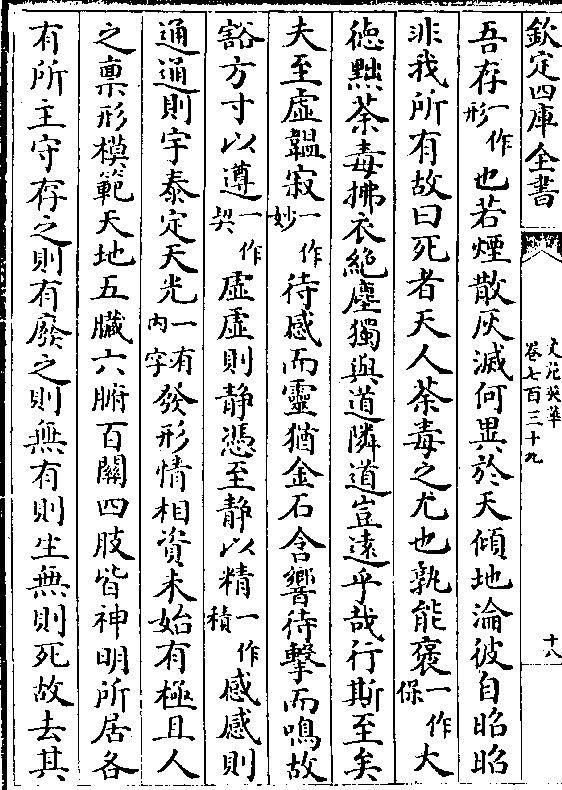 欽定四庫全書
文苑英華
卷七百三十九
十八
吾存一作形也若煙散灰滅何異於天傾地淪彼自昭昭
非我所有故曰死者天人荼毒之尤也孰能褒一作保大
徳黜荼毒拂衣絶塵獨與道隣道豈遠乎哉行斯至矣
夫至虛韞寂一作妙待感而靈猶金石含響待擊而鳴故
豁方寸以遵一作契虛虛則静憑至静以精一作積感感則
通通則宇泰定天光一有内字發形情相資未始有極且人
之稟形模範天地五臓六腑百關四肢皆神明所居各
有所主守存之則有廢之則無有則生無則死故去其